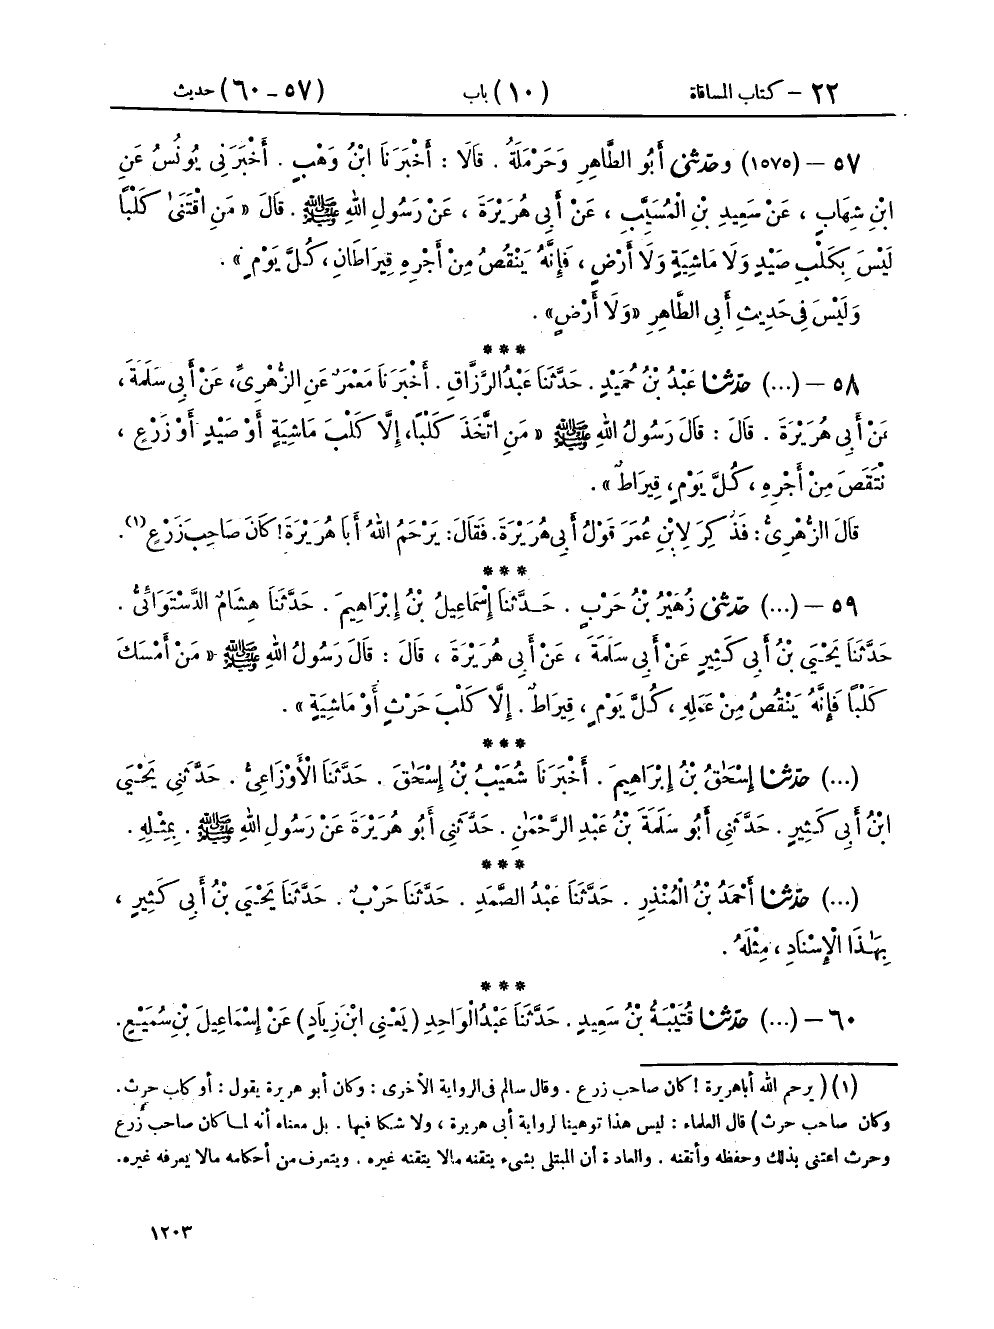 ٢٢ – كتاب المساقاة (١٠) باب (٥٧ - ٦٠) حديث
٥٧ – (١٥٧٥) وحَدَّثَنِي أَبُو الطَّاهِرِ وَحَرْمَلَةُ . قَالَا : أَخْبَرَنَا ابْنُ وَهْبٍ . أَخْبَرَنِي يُونُسُ عَنِ
ابْنِ شِهَابٍ ، عَنْ سَعِيدِ بْنِ الْمُسَيَّبِ ، عَنْ أَبِي هُرَيْرَةَ ، عَنْ رَسُولِ اللهِ ﷺ . قَالَ « مَنِ اقْتَنَىٰ كَلْبًا
لَيْسَ بِكَلْبِ صَيْدٍ وَلَا مَاشِيَةٍ وَلَا أَرْضٍ ، فَإِنَّهُ يَنْقُصُ مِنْ أَجْرِهِ قِيرَاطَانِ ، كُلَّ يَوْمٍ » .
وَلَيْسَ فِي حَدِيثِ أَبِي الطَّاهِرِ « وَلَا أَرْضٍ » .
* * *
٥٨ – (...) حَدَّثَنَا عَبْدُ بْنُ حُمَيْدٍ . حَدَّثَنَا عَبْدُ الرَّزَّاقِ . أَخْبَرَنَا مَعْمَرٌ عَنِ الزُّهْرِيِّ، عَنْ أَبِي سَلَمَةَ ،
عَنْ أَبِي هُرَيْرَةَ . قَالَ : قَالَ رَسُولُ اللهِ ﷺ « مَنِ اتَّخَذَ كَلْبًا، إِلَّا كَلْبَ مَاشِيَةٍ أَوْ صَيْدٍ أَوْ زَرْعٍ ،
نْتَقَصَ مِنْ أَجْرِهِ ، كُلَّ يَوْمٍ، قِيرَاطٌ » .
قَالَ الزُّهْرِيُّ : فَذُكِرَ لِابْنِ عُمَرَ قَوْلُ أَبِي هُرَيْرَةَ. فَقَالَ: يَرْحَمُ اللهُ أَبَا هُرَيْرَةَ! كَانَ صَاحِبَ زَرْعٍ (١) .
* * *
٥٩ – (...) حَدَّثَنِي زُهَيْرُ بْنُ حَرْبٍ . حَدَّثَنَا إِسْمَاعِيلُ بْنُ إِبْرَاهِيمَ . حَدَّثَنَا هِشَامٌ الدَّسْتَوَائِيُّ .
حَدَّثَنَا يَحْيَى بْنُ أَبِي كَثِيرٍ عَنْ أَبِي سَلَمَةَ ، عَنْ أَبِي هُرَيْرَةَ ، قَالَ : قَالَ رَسُولُ اللهِ ﷺ « مَنْ أَمْسَكَ
كَلْبًا فَإِنَّهُ يَنْقُصُ مِنْ عَمَلِهِ ، كُلَّ يَوْمٍ ، قِيرَاطٌ . إِلَّا كَلْبَ حَرْثٍ أَوْ مَاشِيَةٍ » .
* * *
(...) حَدَّثَنَا إِسْحَٰقُ بْنُ إِبْرَاهِيمَ . أَخْبَرَنَا شُعَيْبُ بْنُ إِسْحَٰقَ . حَدَّثَنَا الْأَوْزَاعِيُّ . حَدَّثَنِي يَحْيَى
ابْنُ أَبِي كَثِيرٍ . حَدَّثَنِي أَبُو سَلَمَةَ بْنُ عَبْدِ الرَّحْمَٰنِ . حَدَّثَنِي أَبُو هُرَيْرَةَ عَنْ رَسُولِ اللهِ ﷺ . بِمِثْلِهِ .
* * *
(...) حَدَّثَنَا أَحْمَدُ بْنُ الْمُنْذِرِ . حَدَّثَنَا عَبْدُ الصَّمَدِ . حَدَّثَنَا حَرْبٌ . حَدَّثَنَا يَحْيَى بْنُ أَبِي كَثِيرٍ ،
بِهَٰذَا الْإِسْنَادِ ، مِثْلَهُ .
* * *
٦٠ – (...) حَدَّثَنَا قُتَيْبَةُ بْنُ سَعِيدٍ . حَدَّثَنَا عَبْدُ الْوَاحِدِ (يَعْنِي ابْنَ زِيَادٍ) عَنْ إِسْمَاعِيلَ بْنِ سُمَيْعٍ.
(١) ( يرحم الله أباهريرة ! كان صاحب زرع . وقال سالم في الرواية الأخرى : وكان أبو هريرة يقول : أو كلب حرث .
وكان صاحب حرث) قال العلماء : ليس هذا توهينا لرواية أبي هريرة ، ولا شكا فيها . بل معناه أنه لما كان صاحب زرع
وحرث اعتنى بذلك وحفظه وأتقنه . والعادة أن المبتلى بشيء يتقنه مالا يتقنه غيره . ويتعرف من أحكامه مالا يعرفه غيره.
١٢٠٣